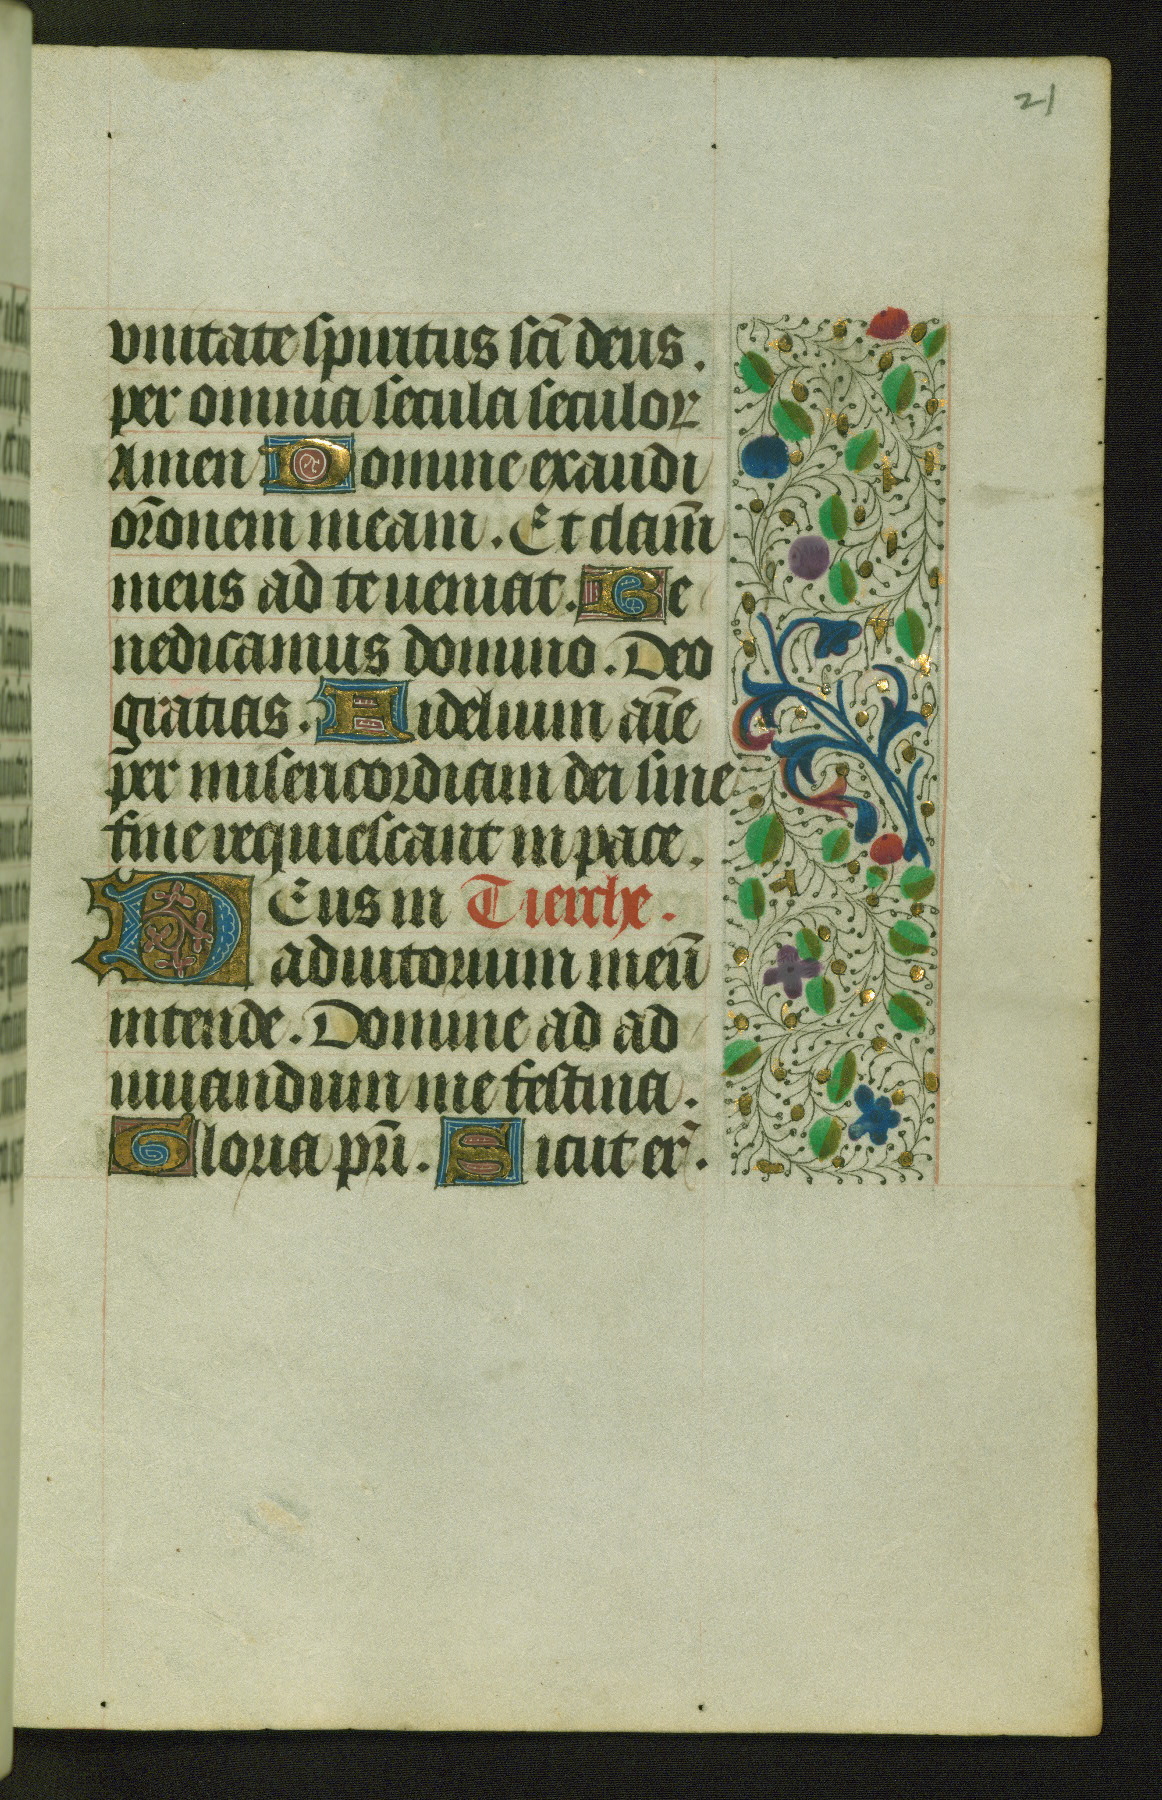 21
vnitate spiritus sc̄i deus.
per omnia secula seculoꝝ
Amen Domine exaudi
or̄onem meam. Et clam̄
meus ad te ueniat. Be
nedicamus domino. Deo
gratias. Fidelium aīe
per misericordiam dei sine
fine requiescant in pace.
Deus in Tierche.
adiutorium meū
intende. Domine ad ad
iuuandum me festina.
Gloria pr̄i. Sicut er̄.